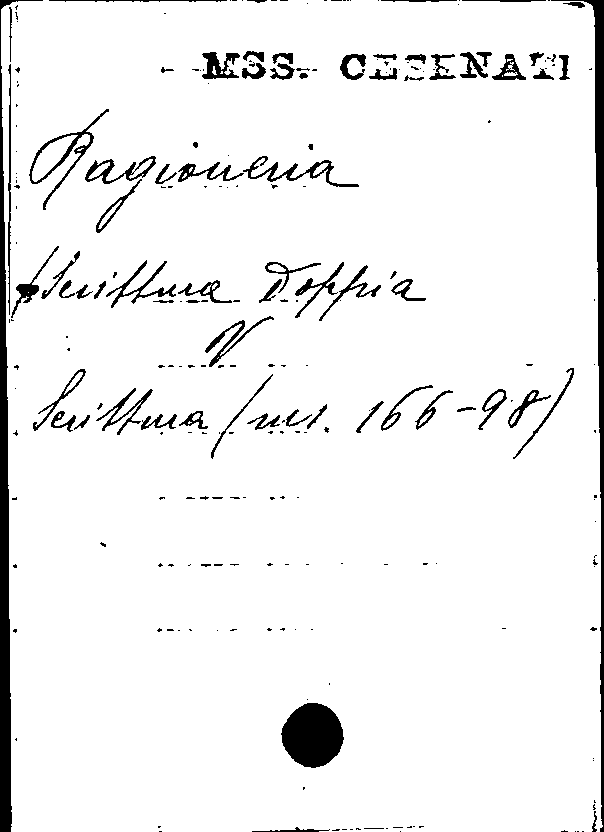 MSS. CESENATI
Ragioneria
Scrittura Doppia
V
Scrittura (ms. 166-98)